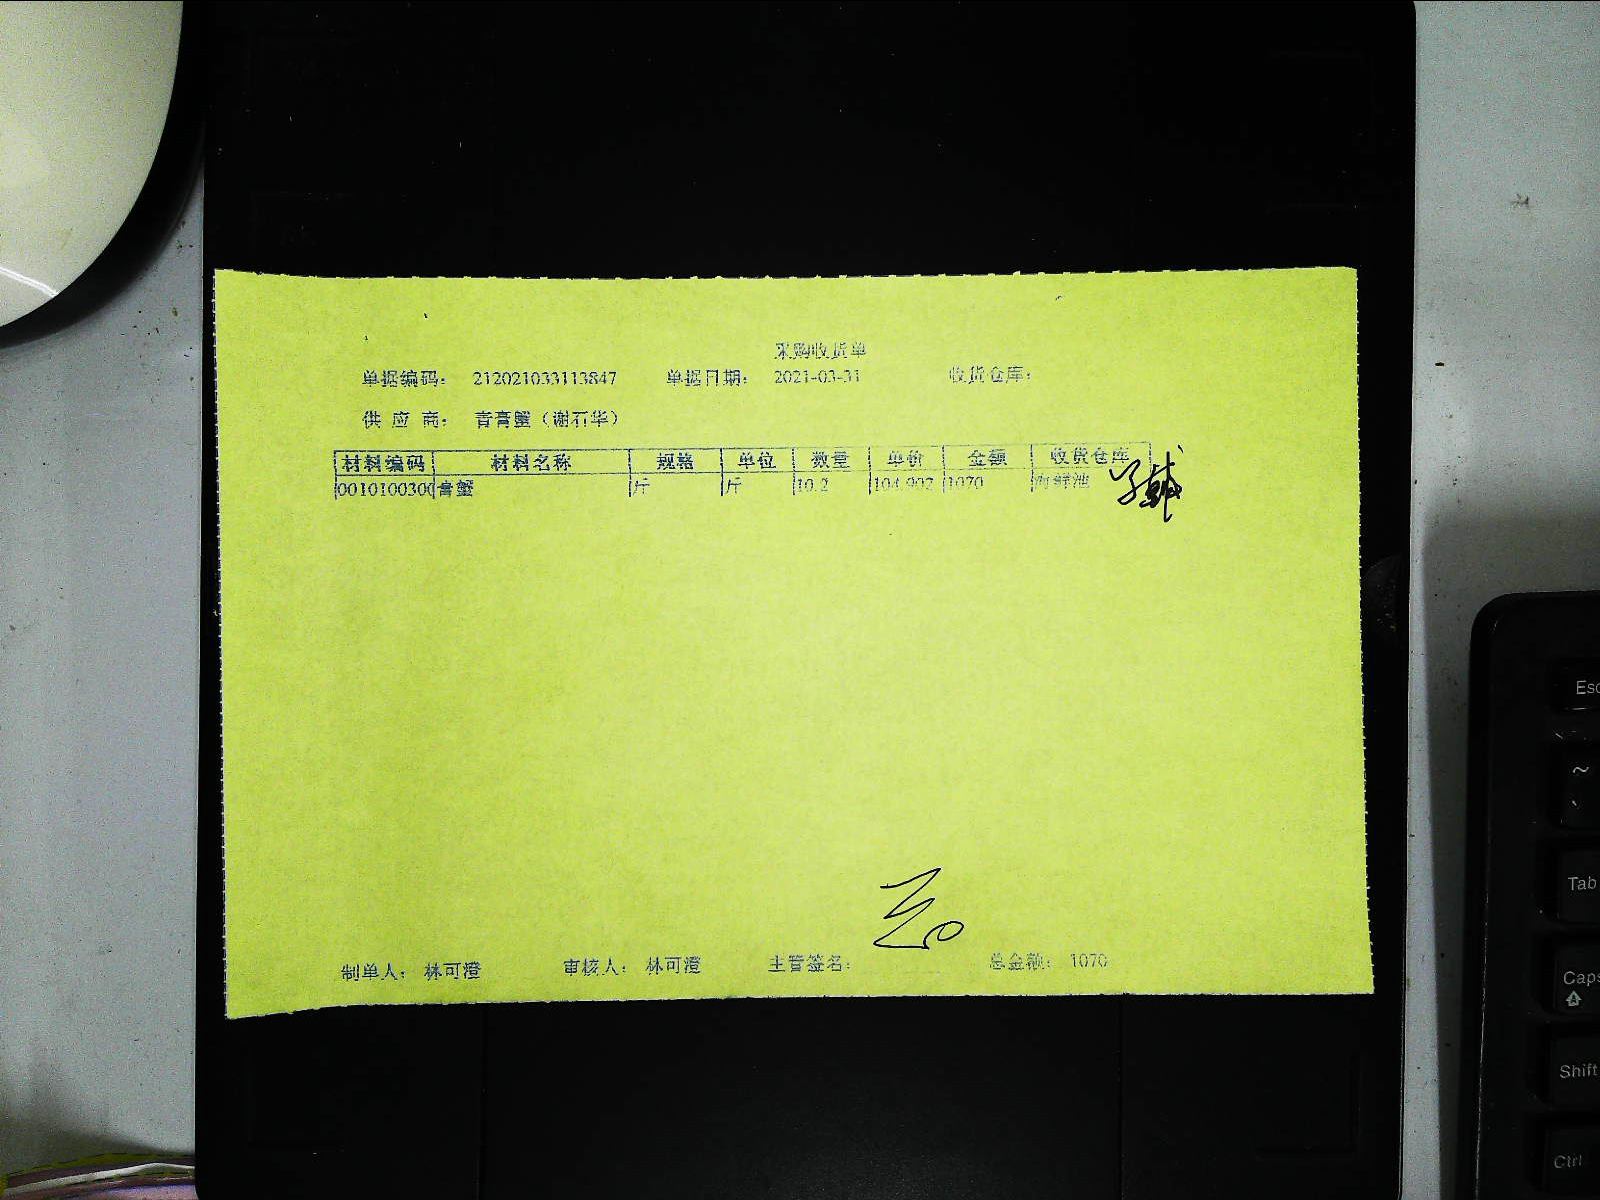 采购收货单
单据编码： 212021033113847 单据日期： 2021-03-31 收货仓库：
供 应 商： 青膏蟹（谢石华）
材料编码 材料名称 规格 单位 数量 单价 金额 收货仓库
0010100300 膏蟹 斤 斤 10.2 104.902 1070 海鲜池
制单人： 林可澄 审核人： 林可澄 主管签名： 总金额： 1070
Esc
~
Tab
Caps
Shift
Ctrl